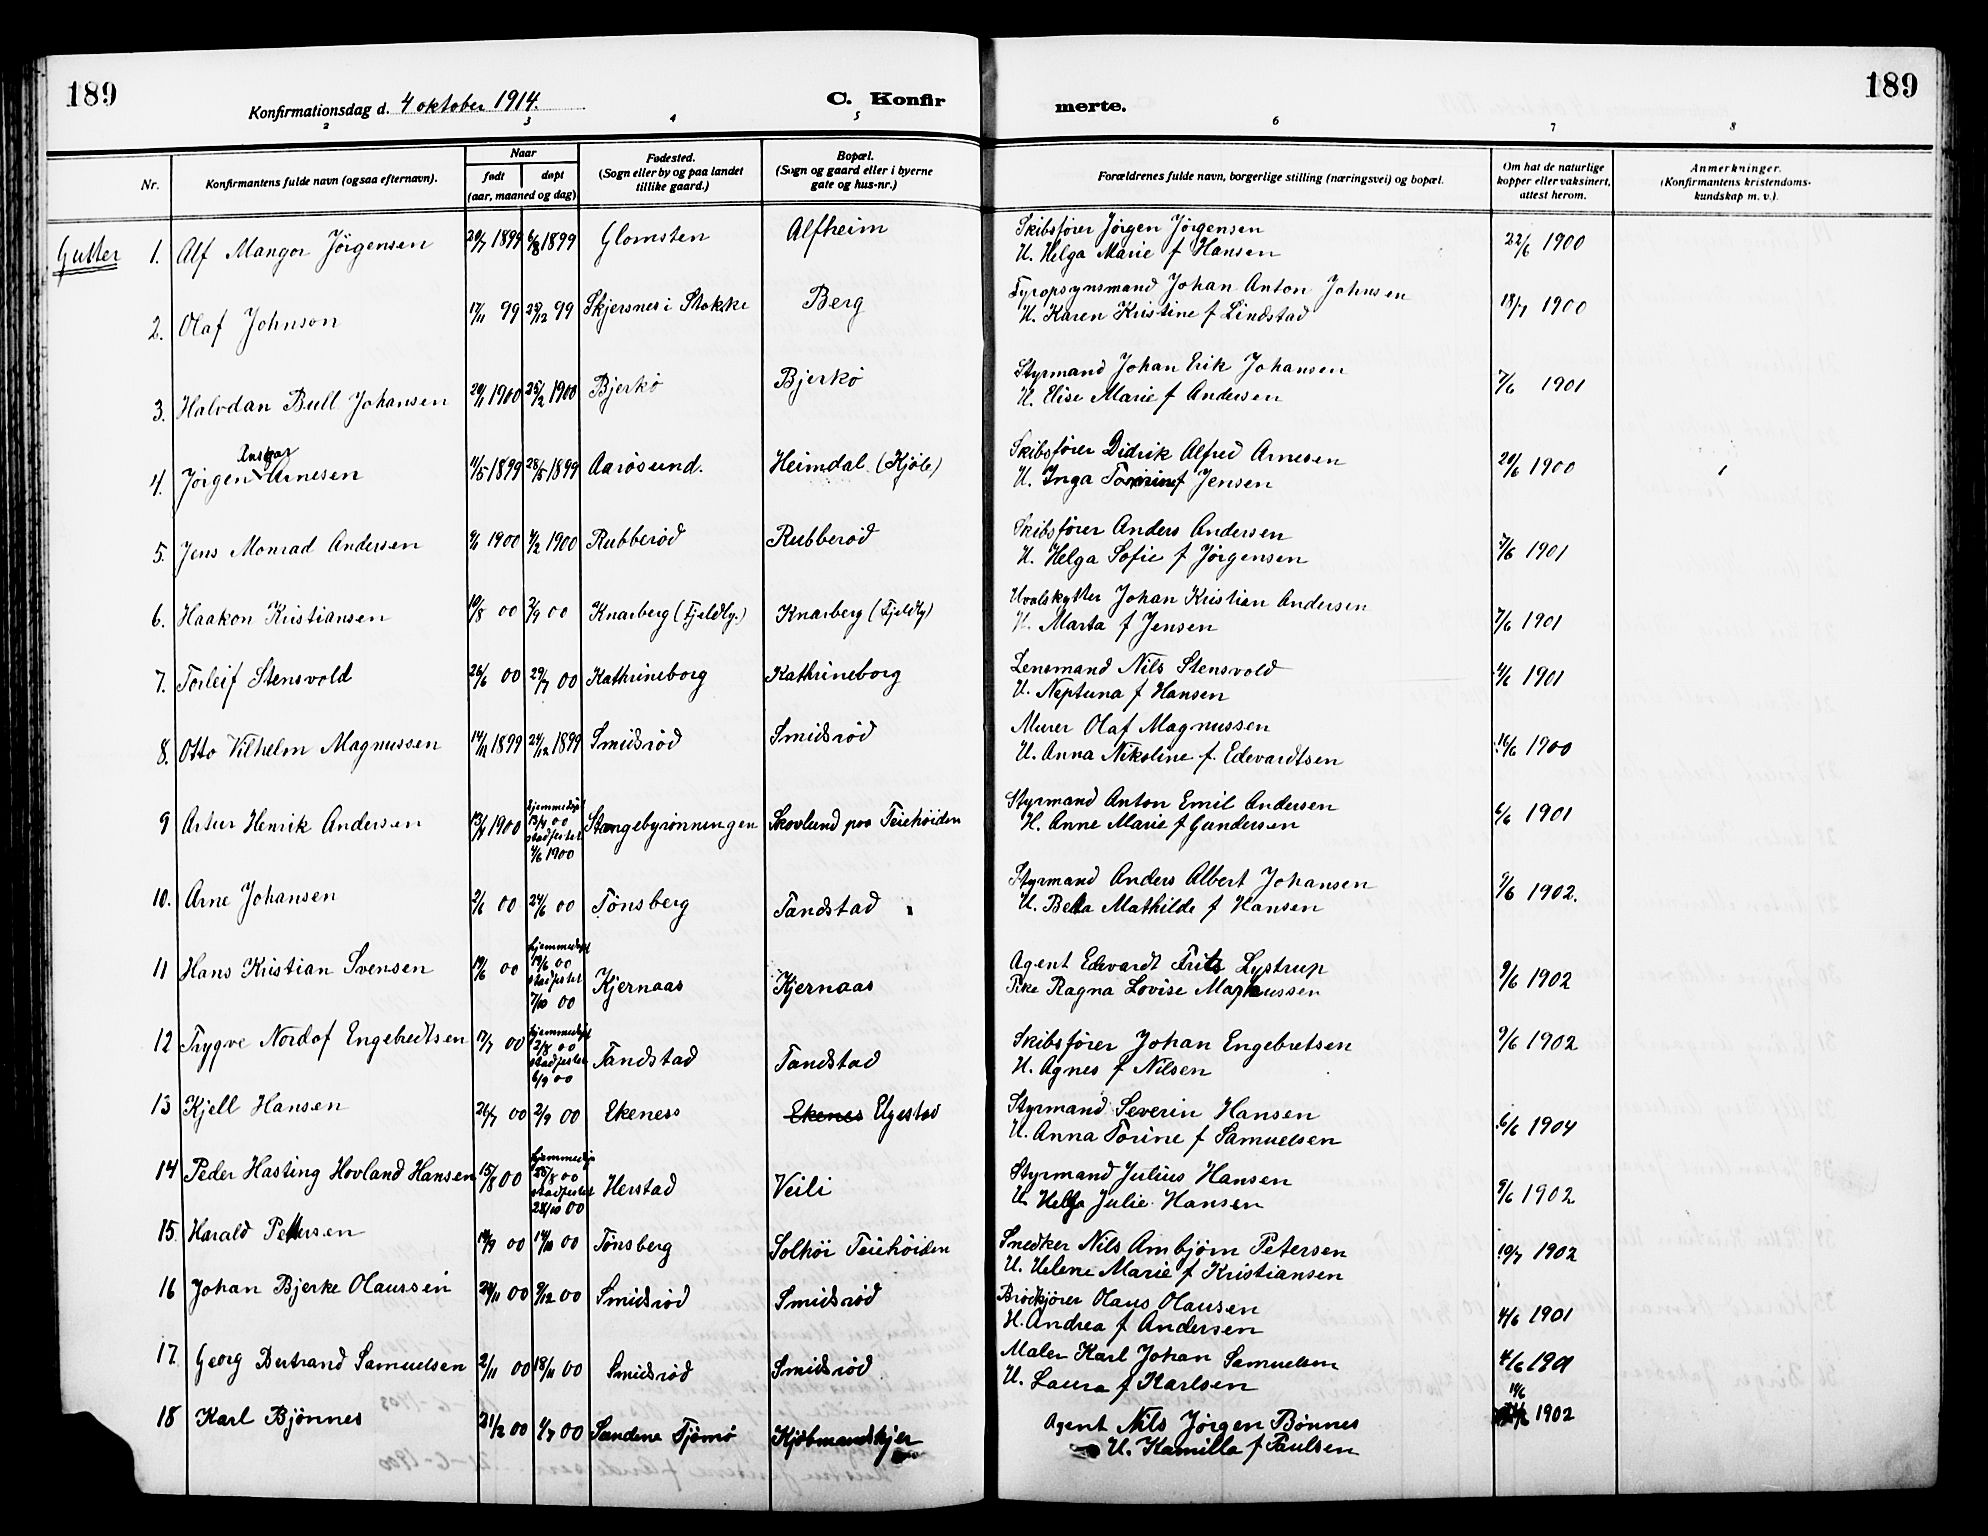 189
Konfirmationsdag d. 4 oktober 1914.
C. Konfir
merte.
189
2 3 4 5 6 7 8
Nr.
Konfirmantens fulde navn (ogsaa efternavn).
Naar
født døpt
(aar, maaned og dag)
Fødested.
(Sogn eller by og paa landet
tillike gaard.)
Bopæl.
(Sogn og gaard eller i byerne
gate og hus-nr.)
Forældrenes fulde navn, borgerlige stilling (næringsvei) og bopæl.
Om hat de naturlige
kopper eller vaksinert,
attest herom.
Anmerkninger.
(Konfirmantens kristendoms-
kundskap m. v.).
Gutter 1. Alf Mangor Jörgensen 20/7 1899 6/8 1899 Glomsten Alfheim Skibsfører Jörgen Jörgensen 22/6 1900
U. Helga Marie f Hansen
2. Olaf Johnson 17/11 99 25/12 99 Skjersnes i Stokke Berg Fyropsynsmand Johan Anton Johnsen 18/7 1900
H. Karen Kristine f Lindstad
3. Halvdan Bull Johansen 20/1 1900 25/2 1900 Bjerkö Bjerkö Styrmand Johan Erik Johansen 7/6 1901
H. Elise Marie f Andersen
4. Jørgen Ansgar Arnesen 11/5 1899 28/5 1899 Aarøsund. Heimdal (Kjøle) Skibsfører Didrik Alfred Arnesen 20/6 1900
U. Inga f Jensen
5. Jens Monrad Andersen 9/1 1900 4/2 1900 Rubberød Rubberød Skibsfører Anders Andersen 7/6 1901
H. Helga Sofie f Jørgensen
6. Haakon Kristiansen 19/8 00 2/9 00 Knarberg (Fjeldly.) Knarberg (Fjeldly) Hvalskytter Johan Kristian Andersen 7/6 1901
H. Marta f Jensen
7. Torleif Stensvold 26/6 00 29/7 00 Kathrineborg Kathrineborg Lensmand Nils Stensvold 4/6 1901
U. Neptuna f Hansen
8. Otto Vilhelm Magnussen 14/11 1899 24/12 1899 Smidsrød Smidsrød Murer Olaf Magnussen 16/6 1900
U. Anna Nikoline f. Edevardtsen
9 Artur Henrik Andersen 13/4 1900 hjemmedøpt 15/4 00 stadfestet 4/6 1900 Stangebyrønningen Skovlund paa Teiehöiden Styrmand Anton Emil Andersen 6/6 1901
H. Anne Marie f Gundersen
10. Arne Johansen 2/6 00 24/6 00 Tønsberg Tandstad Styrmand Anders Albert Johansen 9/6 1902.
U. Berta Mathilde f Hansen
11 Hans Kristian Svensen 19/6 00 hjemmedøpt 19/6 00 stadfestet 7/10 00 Kjernaas Kjernaas Agent Edevardt Fritz Lystrup 9/6 1902
Pike Ragna Lovise Markussen
12 Trygve Nordof Engebredtsen 17/7 00 hjemmedøpt 2/8 00 stadfestet 6/9 00 Tandstad Tandstad Skibsfører Johan Engebretsen 9/6 1902
U. Agnes f Nilsen
13 Kjell Hansen 26/7 00 2/9 00 Ekeness Ekenes Elgestad Styrmand Severin Hansen 6/6 1904
U. Anna Torine f Samuelsen
14 Peder Hasting Hovland Hansen 15/8 00 hjemmedøpt 25/8 00 stadfestet 28/10 00 Herstad Veili Styrmand Julius Hansen 9/6 1902
U. Helga Julie Hansen
15. Harald Pettersen 18/9 00 14/10 00 Tönsberg Solhöi Teiehöiden Snedker Nils Ambjørn Petersen 10/7 1902
U. Helene Marie f Kristiansen
16 Johan Bjerke Olaussen 24/11 00 9/12 00 Smidsrød Smidsrød Brødkjører Olaus Olausen 4/6 1901
H. Andrea f Andersen
17. Georg Bertrand Samuelsen 2/11 00 18/11 00 Smidsrød Smidsrød Maler Karl Johan Samuelsen 4/6 1901
U. Laura f Karlsen
18 Karl Bjönnes 21/2 00 4/7 00 Sandene Tjömö Kjöbmandskjer Agent Nils Jørgen Bönnes 1902
U. Kamilla f Paulsen